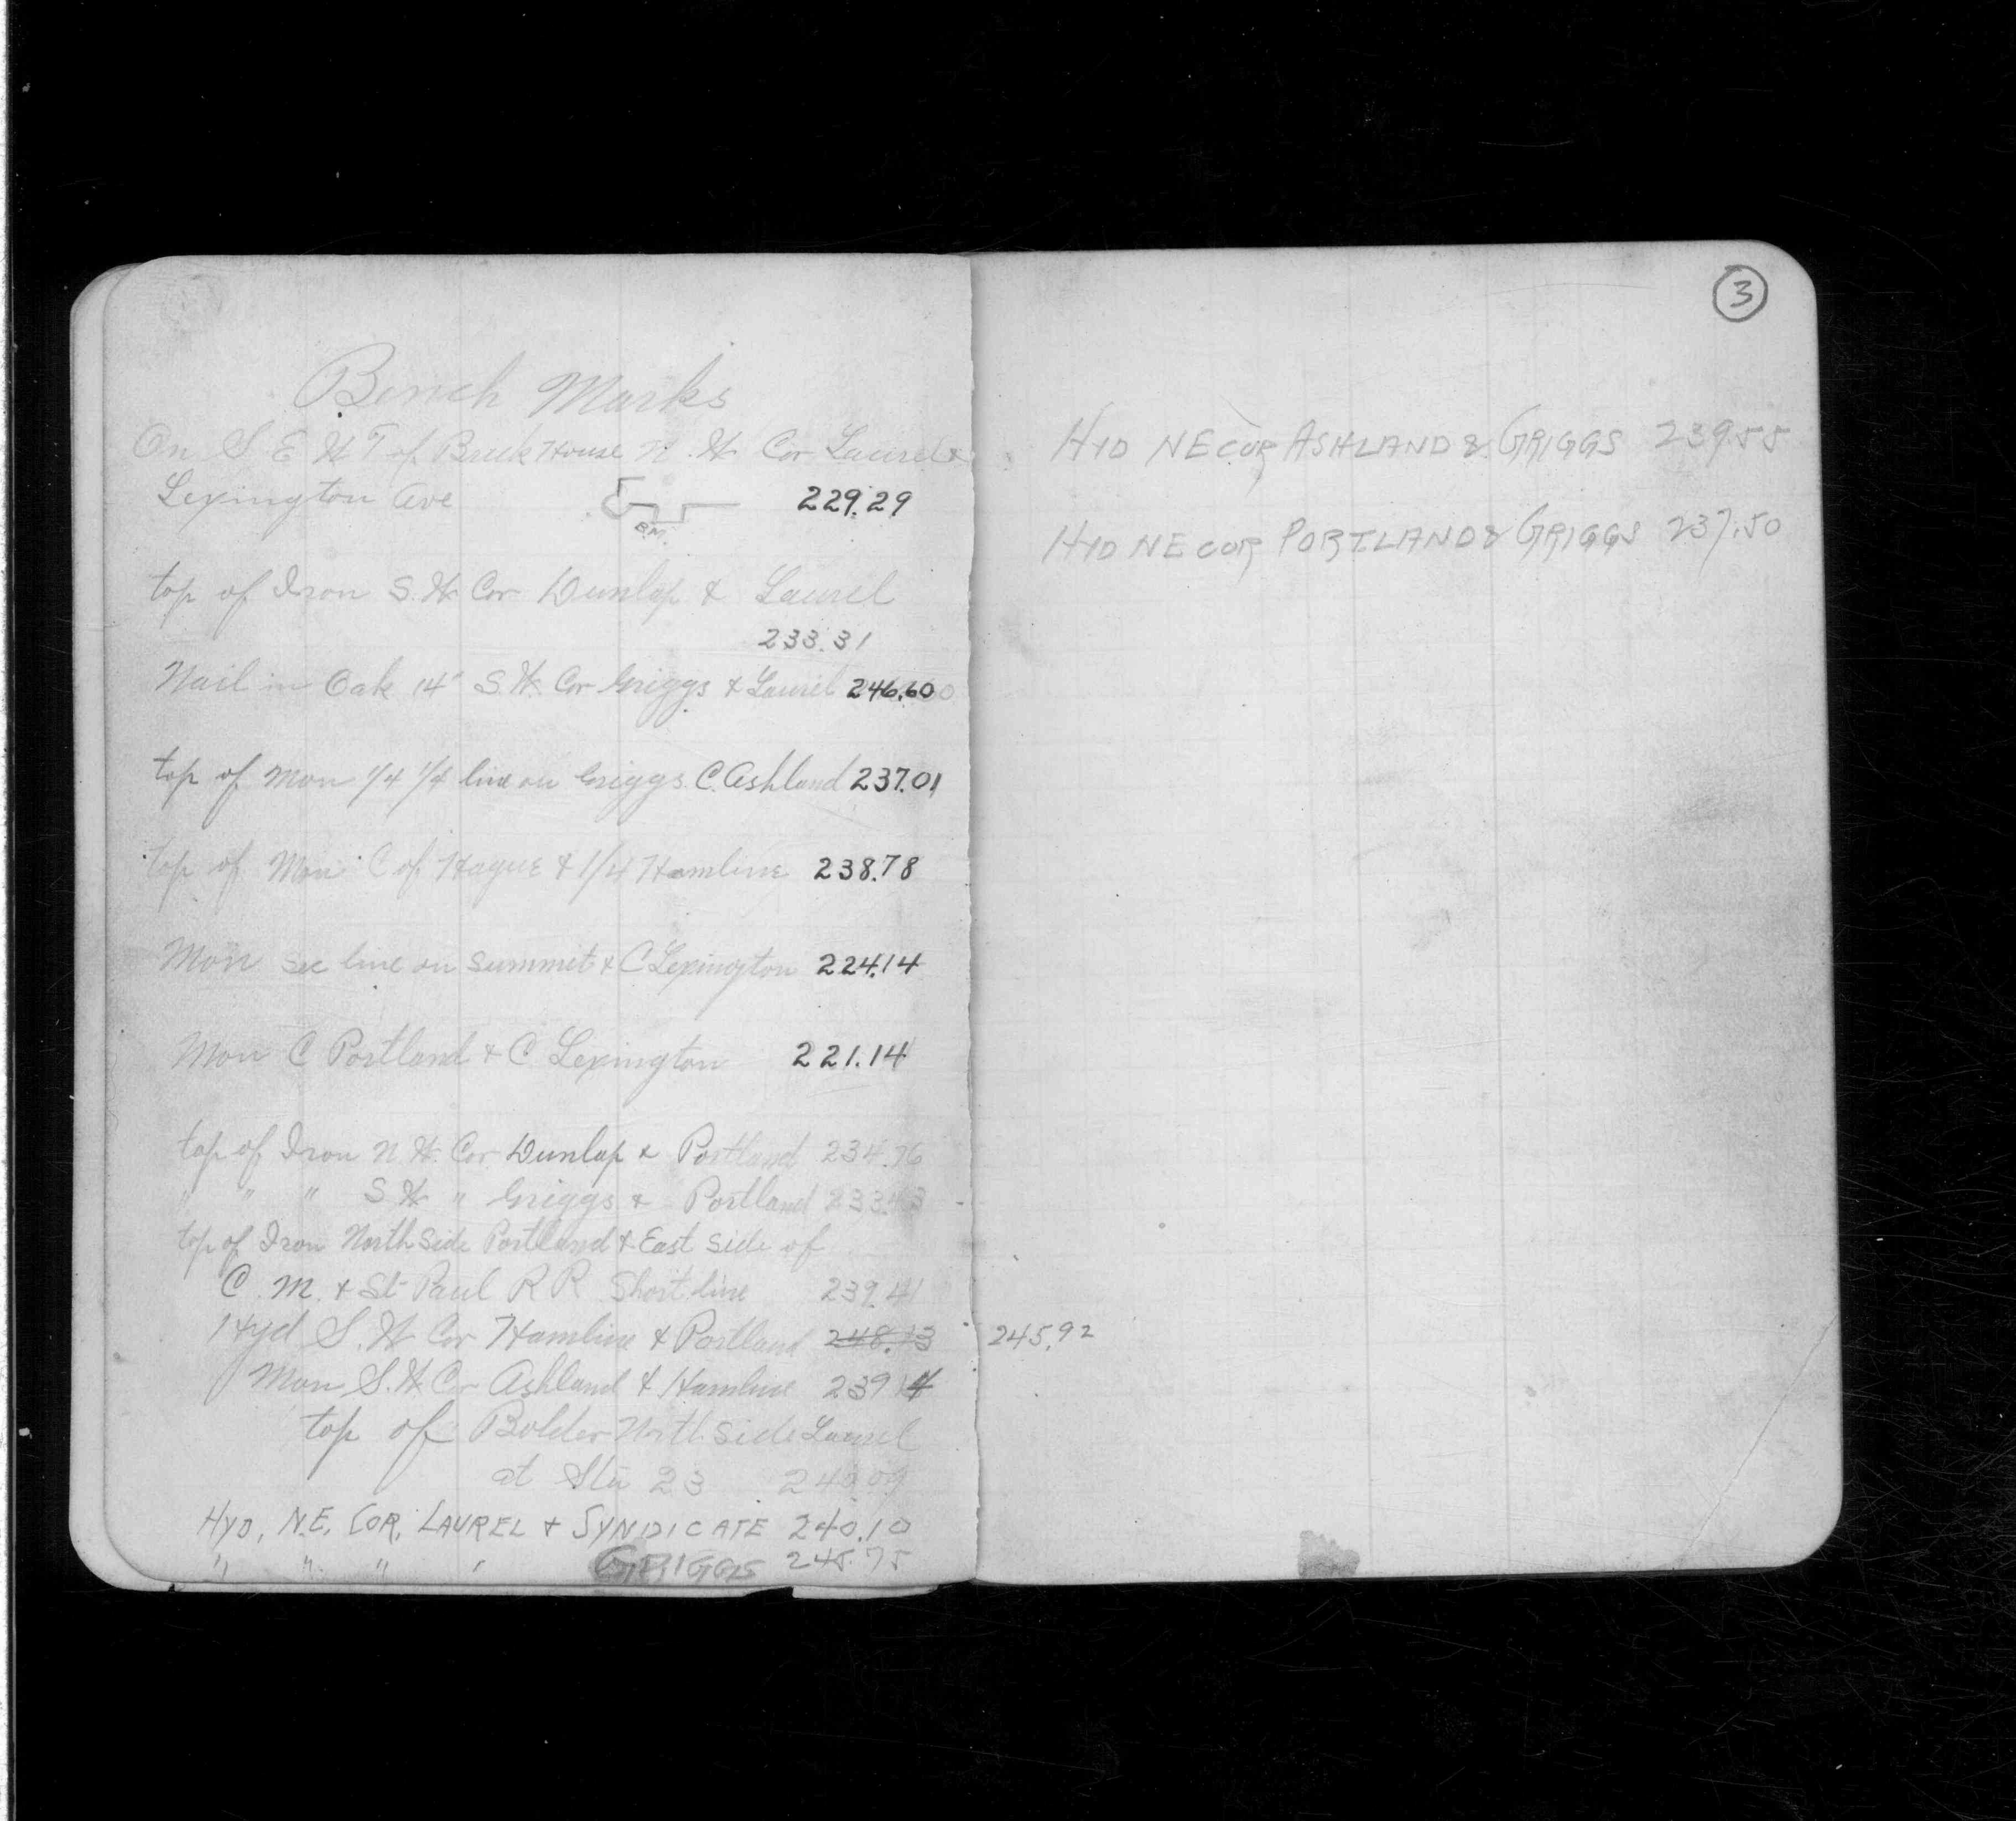 Bench Marks
On S E W T of Brick House N. W. Cor Laurel &
Lexington Ave 229.29
B.M.
top of Iron S. W. Cor Dunlap & Laurel
233.31
Nail in Oak 14" S. W. Cor Griggs & Laurel 246.60
top of Mon 1/4 1/4 line on Griggs C. Ashland 237.01
top of Mon C of Hague & 1/4 Hamline 238.78
Mon Sec line on Summit & C Lexington 224.14
Mon C Portland & C. Lexington 221.14
top of Iron N. W. Cor Dunlap & Portland 234.76
" " " S W " Griggs & Portland
top of Iron North Side Portland & East Side of
C. M. & St Paul R R Short line 239.41
Hyd S. W Cor Hamline & Portland 248.13 245.92
Mon S. W. Cor Ashland & Hamline 239.14
top of Bolder North Side Laurel
at Sta 23 240.09
HYD, N.E. COR. LAUREL & SYNDICATE 240.10
" " " " GRIGGS 245.75
3
HYD NE COR ASHLAND & GRIGGS 239.55
HYD NE COR PORTLAND & GRIGGS 237.50